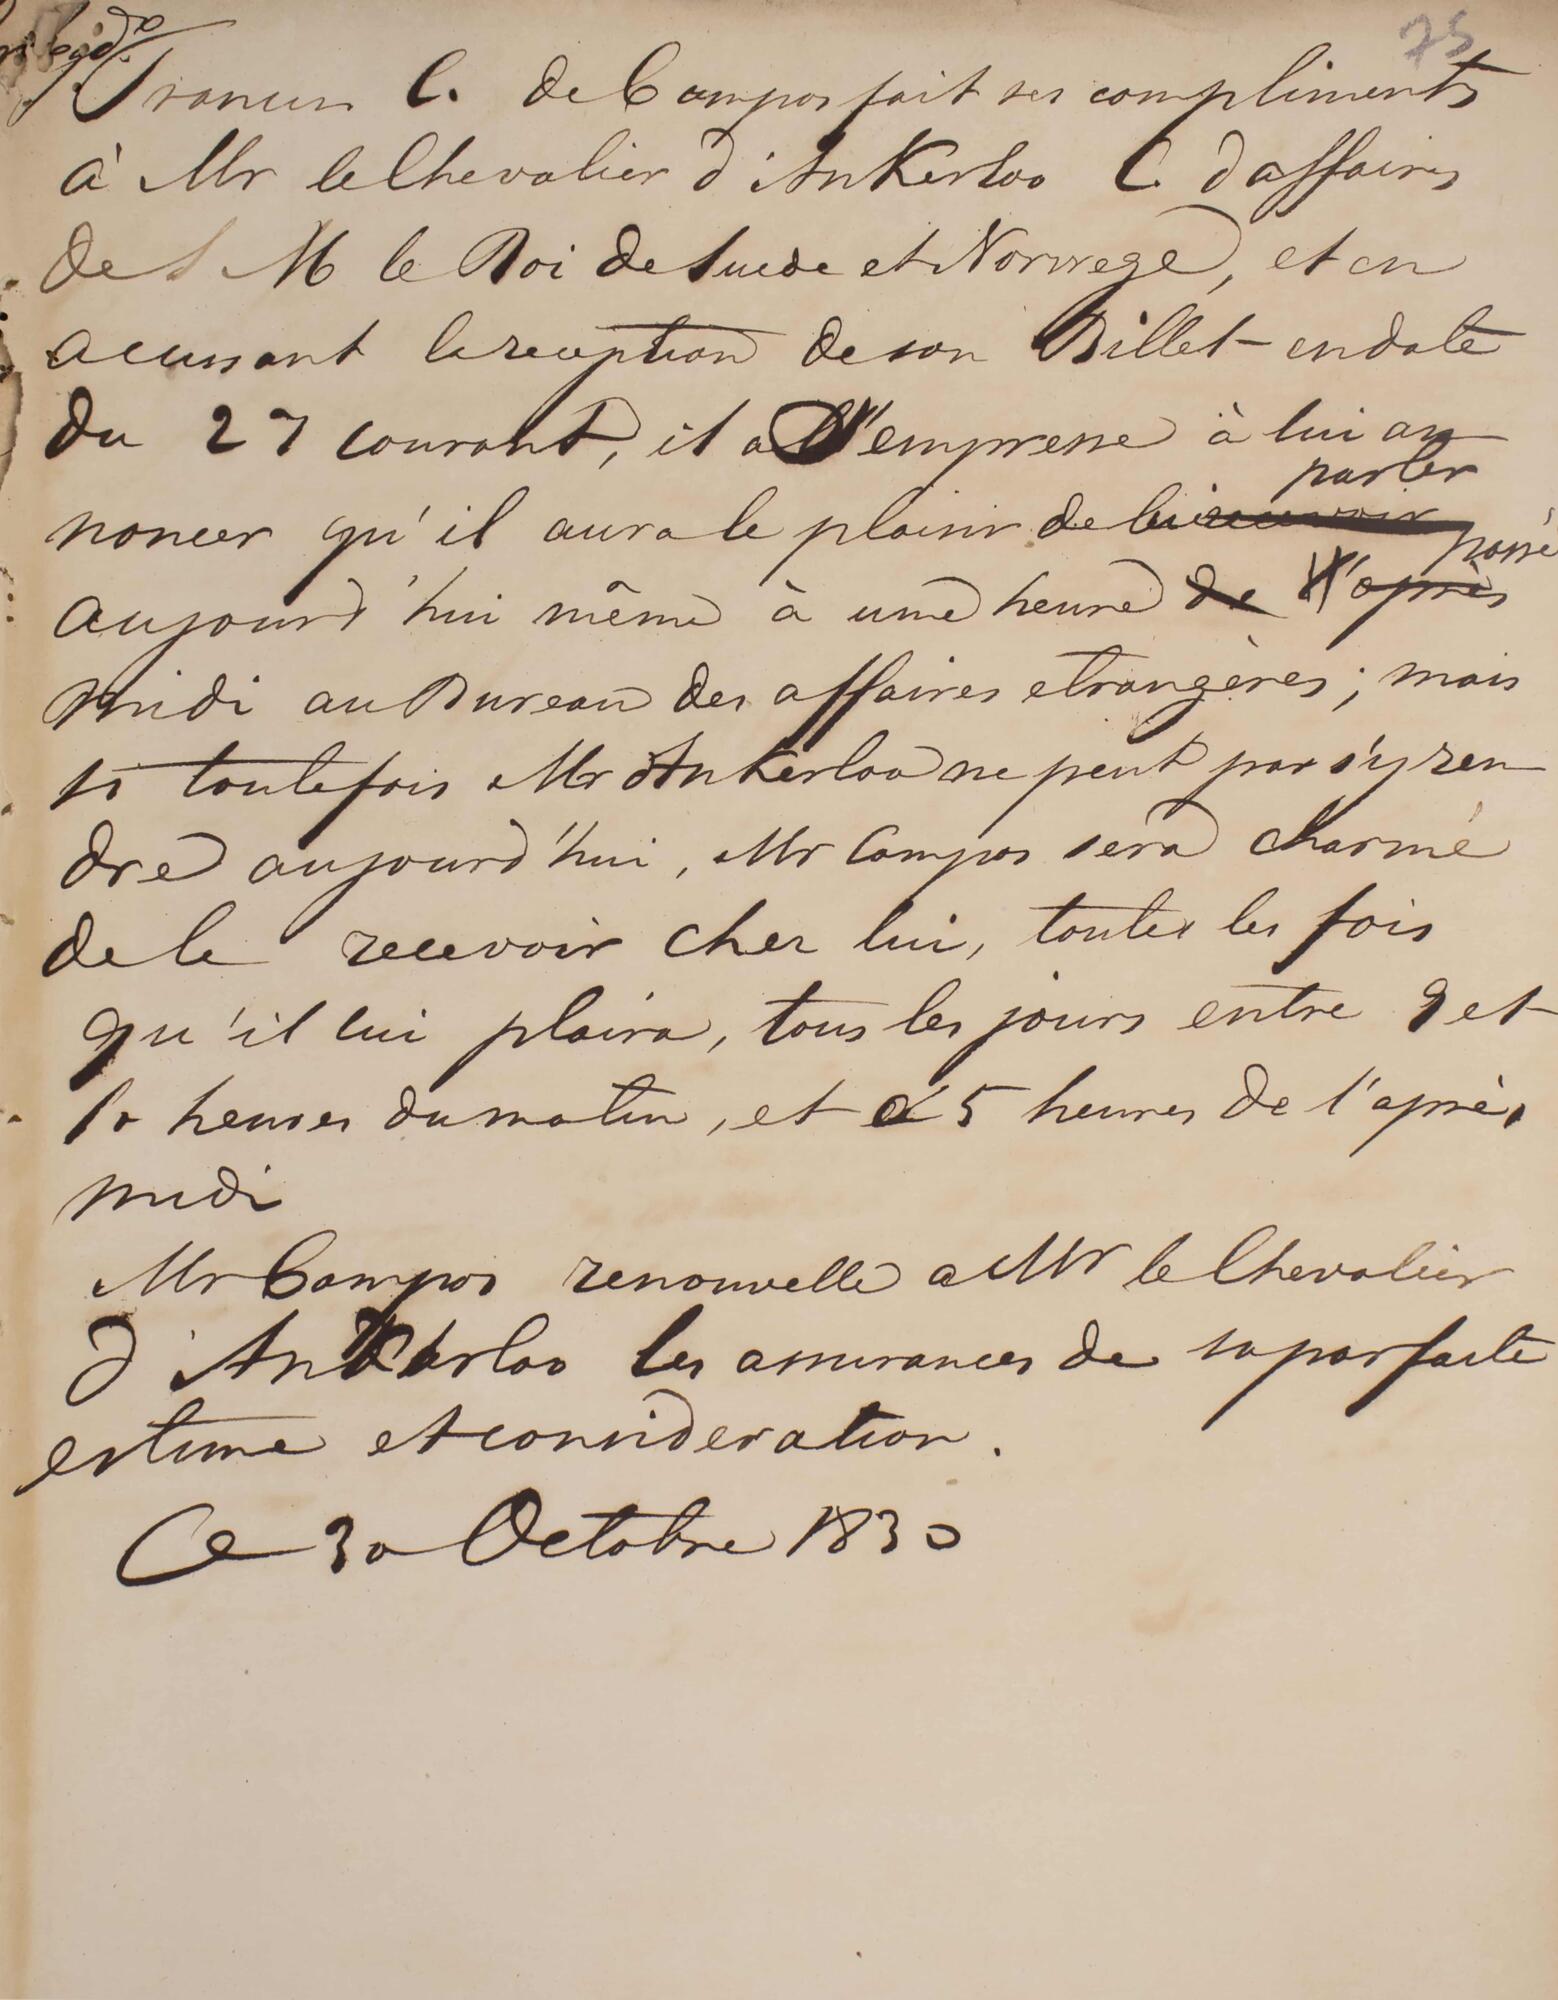 75
Francis C. de Campos fait ses compliments
à Mr le Chevalier d'Ankerloo C. d'affaires
de S M le Roi de Suede et Norwege, et en
acusant la reception de son Billet en date
du 27 courant, il s'empresse à lui an
parler
noncer qu'il aura le plaisir de lui recevoir
passé
aujourd'hui même à une heure de l'après
midi au Bureau des affaires etrangères; mais
si toutefois Mr Ankerloo ne peut pas s'y ren
dre aujourd'hui, Mr Campos sera charmé
de le recevoir chez lui, toutes les fois
qu'il lui plaira, tous les jours entre 9 et
10 heures du matin, et à 5 heures de l'après
midi
Mr Campos renouvelle a Mr le Chevalier
d'Ankerloo les assurances de sa parfaite
estime et consideration.
Ce 30 Octobre 1830